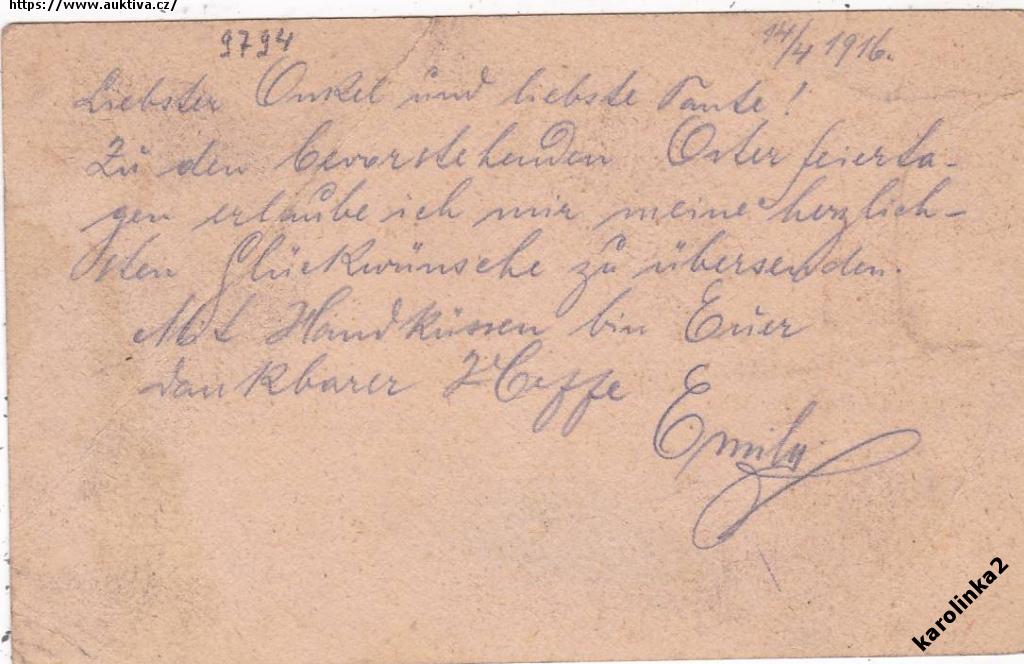 https://www.auktiva.cz/
9794
14/4 1916.
Liebster Onkel und liebste Tante!
Zu den bevorstehenden Osterfeierta-
gen erlaube ich mir meine herzlich-
sten Glückwünsche zu übersenden.
Mit Handküssen bin Euer
dankbarer Neffe
Emil
karolinka2